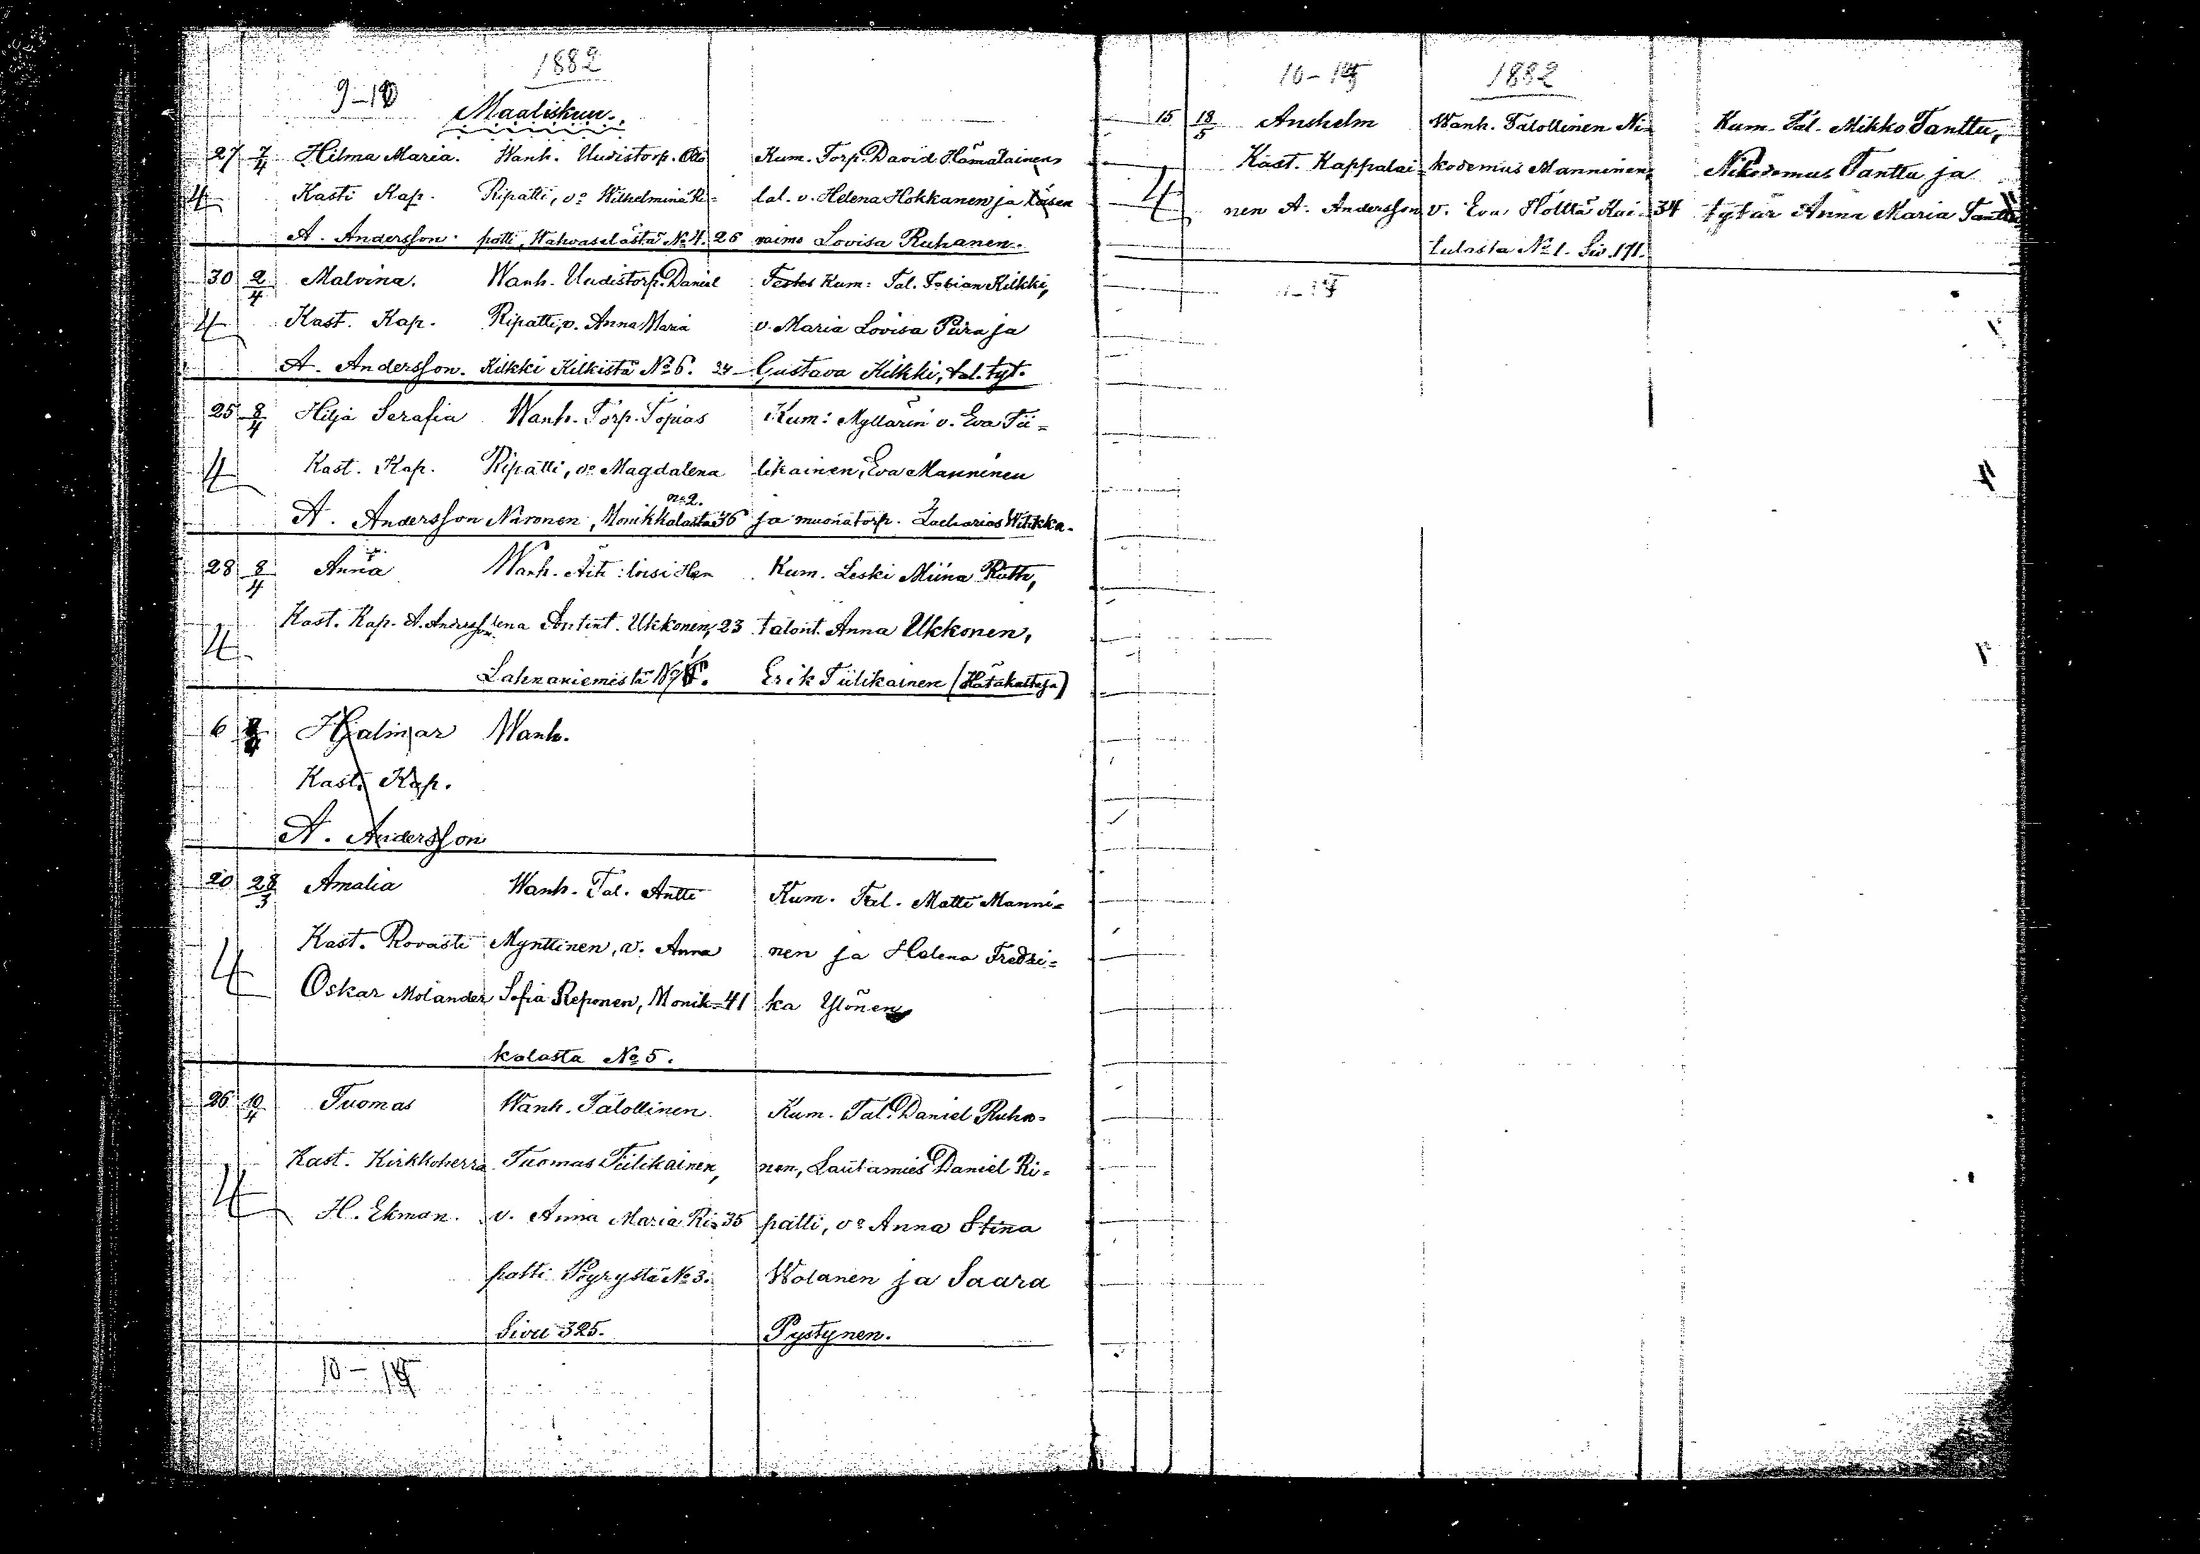 1882
9-10
Maaliskun.
27 7/4 Hilma Maria. Wanh. Uudistorp. Otto Kum. Torp. David Hämäläinen,
4 Kasti Kap. Ripatti, vo Wilhelmina Ri= tal. v. Helena Hokkanen ja loisen
A. Andersson patti, Wahvaselästä No 4. 26 vaimo Lovisa Ruhanen.
30 2/4 Malvina. Wanh. Uudistorp. Daniel Testes Kum: Tal. Fabian Kilkki,
4 Kast. Kap. Ripatti, v. Anna Maria v. Maria Lovisa Piira ja
A. Andersson. Kilkki Kilkistä No 6. 24 Gustava Kilkki, tal. tyt.
25 8/4 Hilja Serafia Wanh. Torp. Topias Kum: Myllärin v. Eva Tii=
4 Kast. Kap. Ripatti, vo Magdalena likainen, Eva Manninen
no 2.
A. Andersson Närönen, Monikkalasta 36 ja muonatorp. Zacharias Wihkka.
28 8/4 Anna Wanh. Äiti: loisi Hen Kum. Leski Miina Ruth,
4 Kast. Kap. A. Andersson lena Antint. Ukkonen, 23 talont. Anna Ukkonen,
Lahnaniemistä No Erik Tiilikainen (Hätäkastaja)
6 8/4 Hjalmar Wanh.
Kast. Kap.
A. Andersson
20 28/3 Amalia Wanh. Tal. Antti Kum. Tal. Matti Manni=
4 Kast. Rovasti Mynttinen, v. Anna nen ja Helena Fredri=
Oskar Molander Sofia Reponen, Monik= 41 ka Ylönen
kalasta No 5.
26 10/4 Tuomas Wanh. Talollinen Kum. Tal. Daniel Ruha=
4 Kast. Kirkkoherra Tuomas Tiilikainen, nen, Lautamies Daniel Ri=
H. Ekman. v. Anna Maria Ri= 35 patti, vo Anna Stina
patti Pöyrystä No 3. Wolanen ja Saara
Sivu 325. Pystynen.
10-1
10-1
1882
15 18/5 Anshelm Wanh. Talollinen Ni= Kum. Tal. Mikko Tanttu,
Kast. Kappalai= kodemus Manninen, Nikodemus Tanttu ja
4 nen A. Andersson v. Eva Hölttä Kai= 34 tytär Anna Maria Tanttu
tulasta No 1. Siv. 171.